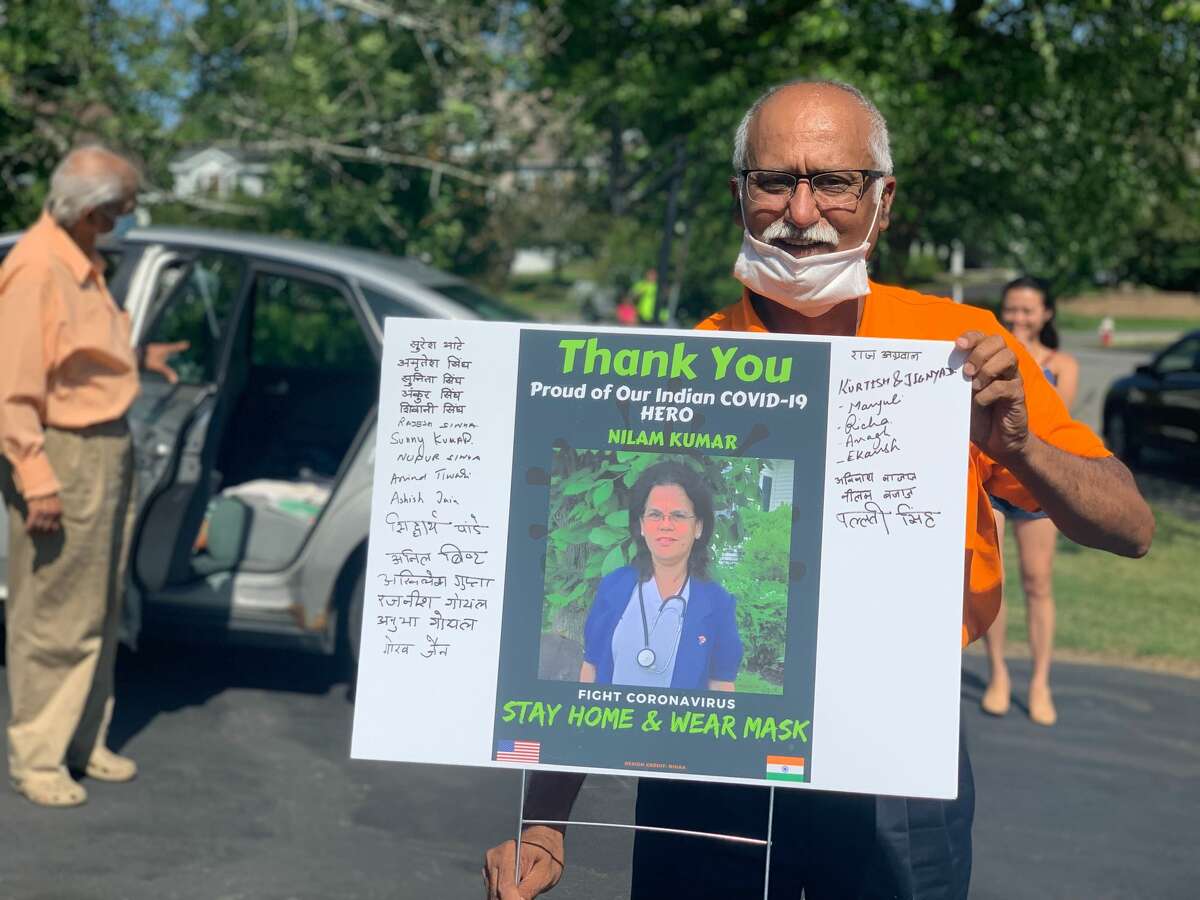 सुरेश भाटे
अमृतेश सिंघ
सुनिता सिंघ
अंकुर सिंघ
शिवानी सिंघ
RAJESH SINHA
SUNNY KUMAR.
NUPUR SINHA
Arvind Tiwari
Ashish Jain
सिद्धार्थ पांडे
अनिल बिष्ट
अखिलेश गुप्ता
रजनीश गोयल
अनुभा गोयल
गौरव जैन
Thank You
Proud of Our Indian COVID-19
HERO
NILAM KUMAR
FIGHT CORONAVIRUS
STAY HOME & WEAR MASK
DESIGN CREDIT:
राज अग्रवाल
KURTISH & JIGNYAD
- Manjul
- Richa
- Anagh
- Ekansh
अविनाश बजाज
नीलम बजाज
पल्लवी सिंह